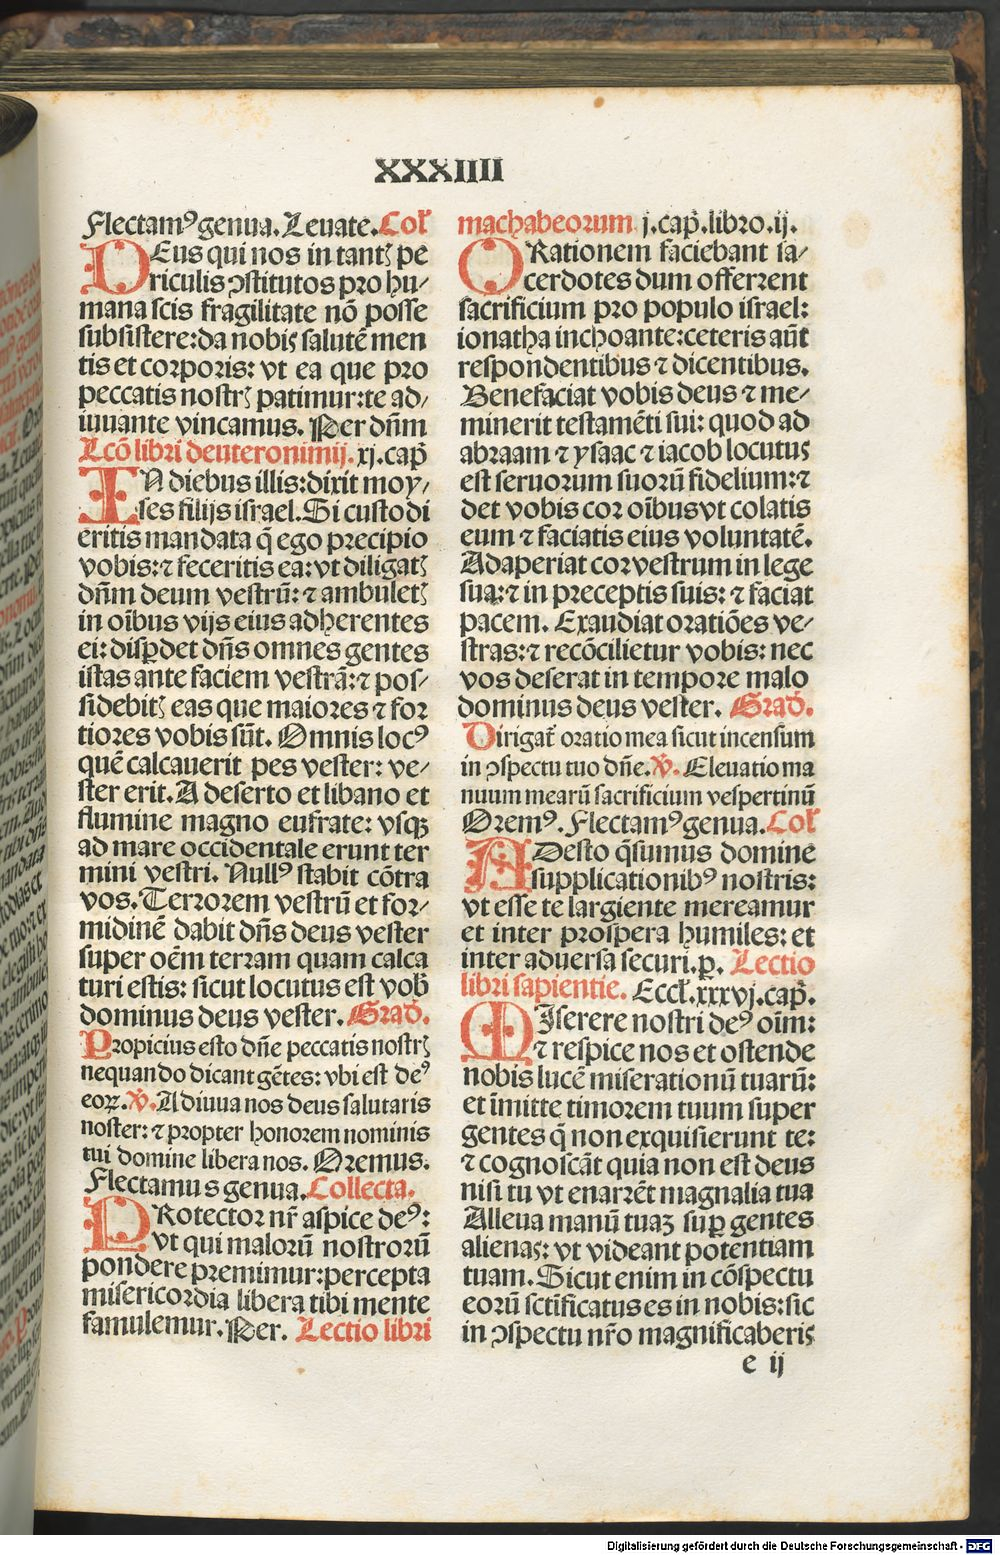 XXXIIII
Flectamꝰ genua. Leuate. Col̄
DEus qui nos in tantꝭ pe
riculis ꝯstitutos pro hu⸗
mana scis fragilitate nō posse
subsistere: da nobis salutē men
tis et corporis: vt ea que pro
peccatis nostrꝭ patimur: te ad⸗
iuuante vincamus. Per dn̄m
Lcō libri deuteronimij. xj. cap̄
IN diebus illis: dixit moy⸗
ses filijs israel. Si custodi
eritis mandata q̄ ego precipio
vobis: ⁊ feceritis ea: vt diligatꝭ
dn̄m deum vestrū: ⁊ ambuletꝭ
in oībus vijs eius adherentes
ei: disꝑdet dn̄s omnes gentes
istas ante faciem vestrā: ⁊ pos⸗
sidebitꝭ eas que maiores ⁊ for
tiores vobis sūt. Omnis locꝰ
quē calcauerit pes vester: ve⸗
ster erit. A deserto et libano et
flumine magno eufrate: vsqꝫ
ad mare occidentale erunt ter
mini vestri. Nullꝰ stabit cōtra
vos. Terrorem vestrū et for⸗
midinē dabit dn̄s deus vester
super oēm terram quam calca
turi estis: sicut locutus est vob̄
dominus deus vester. Grad̄.
Propicius esto dn̄e peccatis nostrꝭ
nequando dicant gētes: vbi est deꝰ
eoꝝ. V̄. Adiuua nos deus salutaris
noster: ⁊ propter honorem nominis
tui domine libera nos. Oremus.
Flectamus genua. Collecta.
PRotector nr̄ aspice deꝰ:
vt qui malorū nostrorū
pondere premimur: percepta
misericordia libera tibi mente
famulemur. Per. Lectio libri
machabeorum j. cap̄. libro. ij.
ORationem faciebant sa⸗
cerdotes dum offerrent
sacrificium pro populo israel:
ionatha inchoante: ceteris aūt
respondentibus ⁊ dicentibus.
Benefaciat vobis deus ⁊ me⸗
minerit testamēti sui: quod ad
abraam ⁊ ysaac ⁊ iacob locutus
est seruorum suorū fidelium: ⁊
det vobis cor oībus vt colatis
eum ⁊ faciatis eius voluntatē.
Adaperiat cor vestrum in lege
sua: ⁊ in preceptis suis: ⁊ faciat
pacem. Exaudiat oratiōes ve⸗
stras: ⁊ recōcilietur vobis: nec
vos deserat in tempore malo
dominus deus vester. Grad̄.
Dirigat̄ oratio mea sicut incensum
in ꝯspectu tuo dn̄e. V̄. Eleuatio ma
nuum mearū sacrificium vespertinū
Oremꝰ. Flectamꝰ genua. Col̄
ADesto q̄sumus domine
supplicationibꝰ nostris:
vt esse te largiente mereamur
et inter prospera humiles: et
inter aduersa securi. ꝑ. Lectio
libri sapientie. Eccl̄. xxxvj. cap̄.
MIserere nostri deꝰ oīm:
⁊ respice nos et ostende
nobis lucē miserationū tuarū:
et īmitte timorem tuum super
gentes q̄ non exquisierunt te:
⁊ cognoscāt quia non est deus
nisi tu vt enarrēt magnalia tua
Alleua manū tuaꝫ suꝑ gentes
alienas: vt videant potentiam
tuam. Sicut enim in cōspectu
eorū sctificatus es in nobis: sic
in ꝯspectu nr̄o magnificaberis
e ij
Digitalisierung gefördert durch die Deutsche Forschungsgemeinschaft - DFG